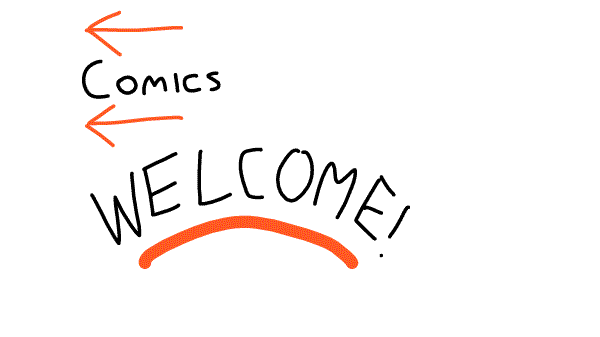 Comics
WELCOME!